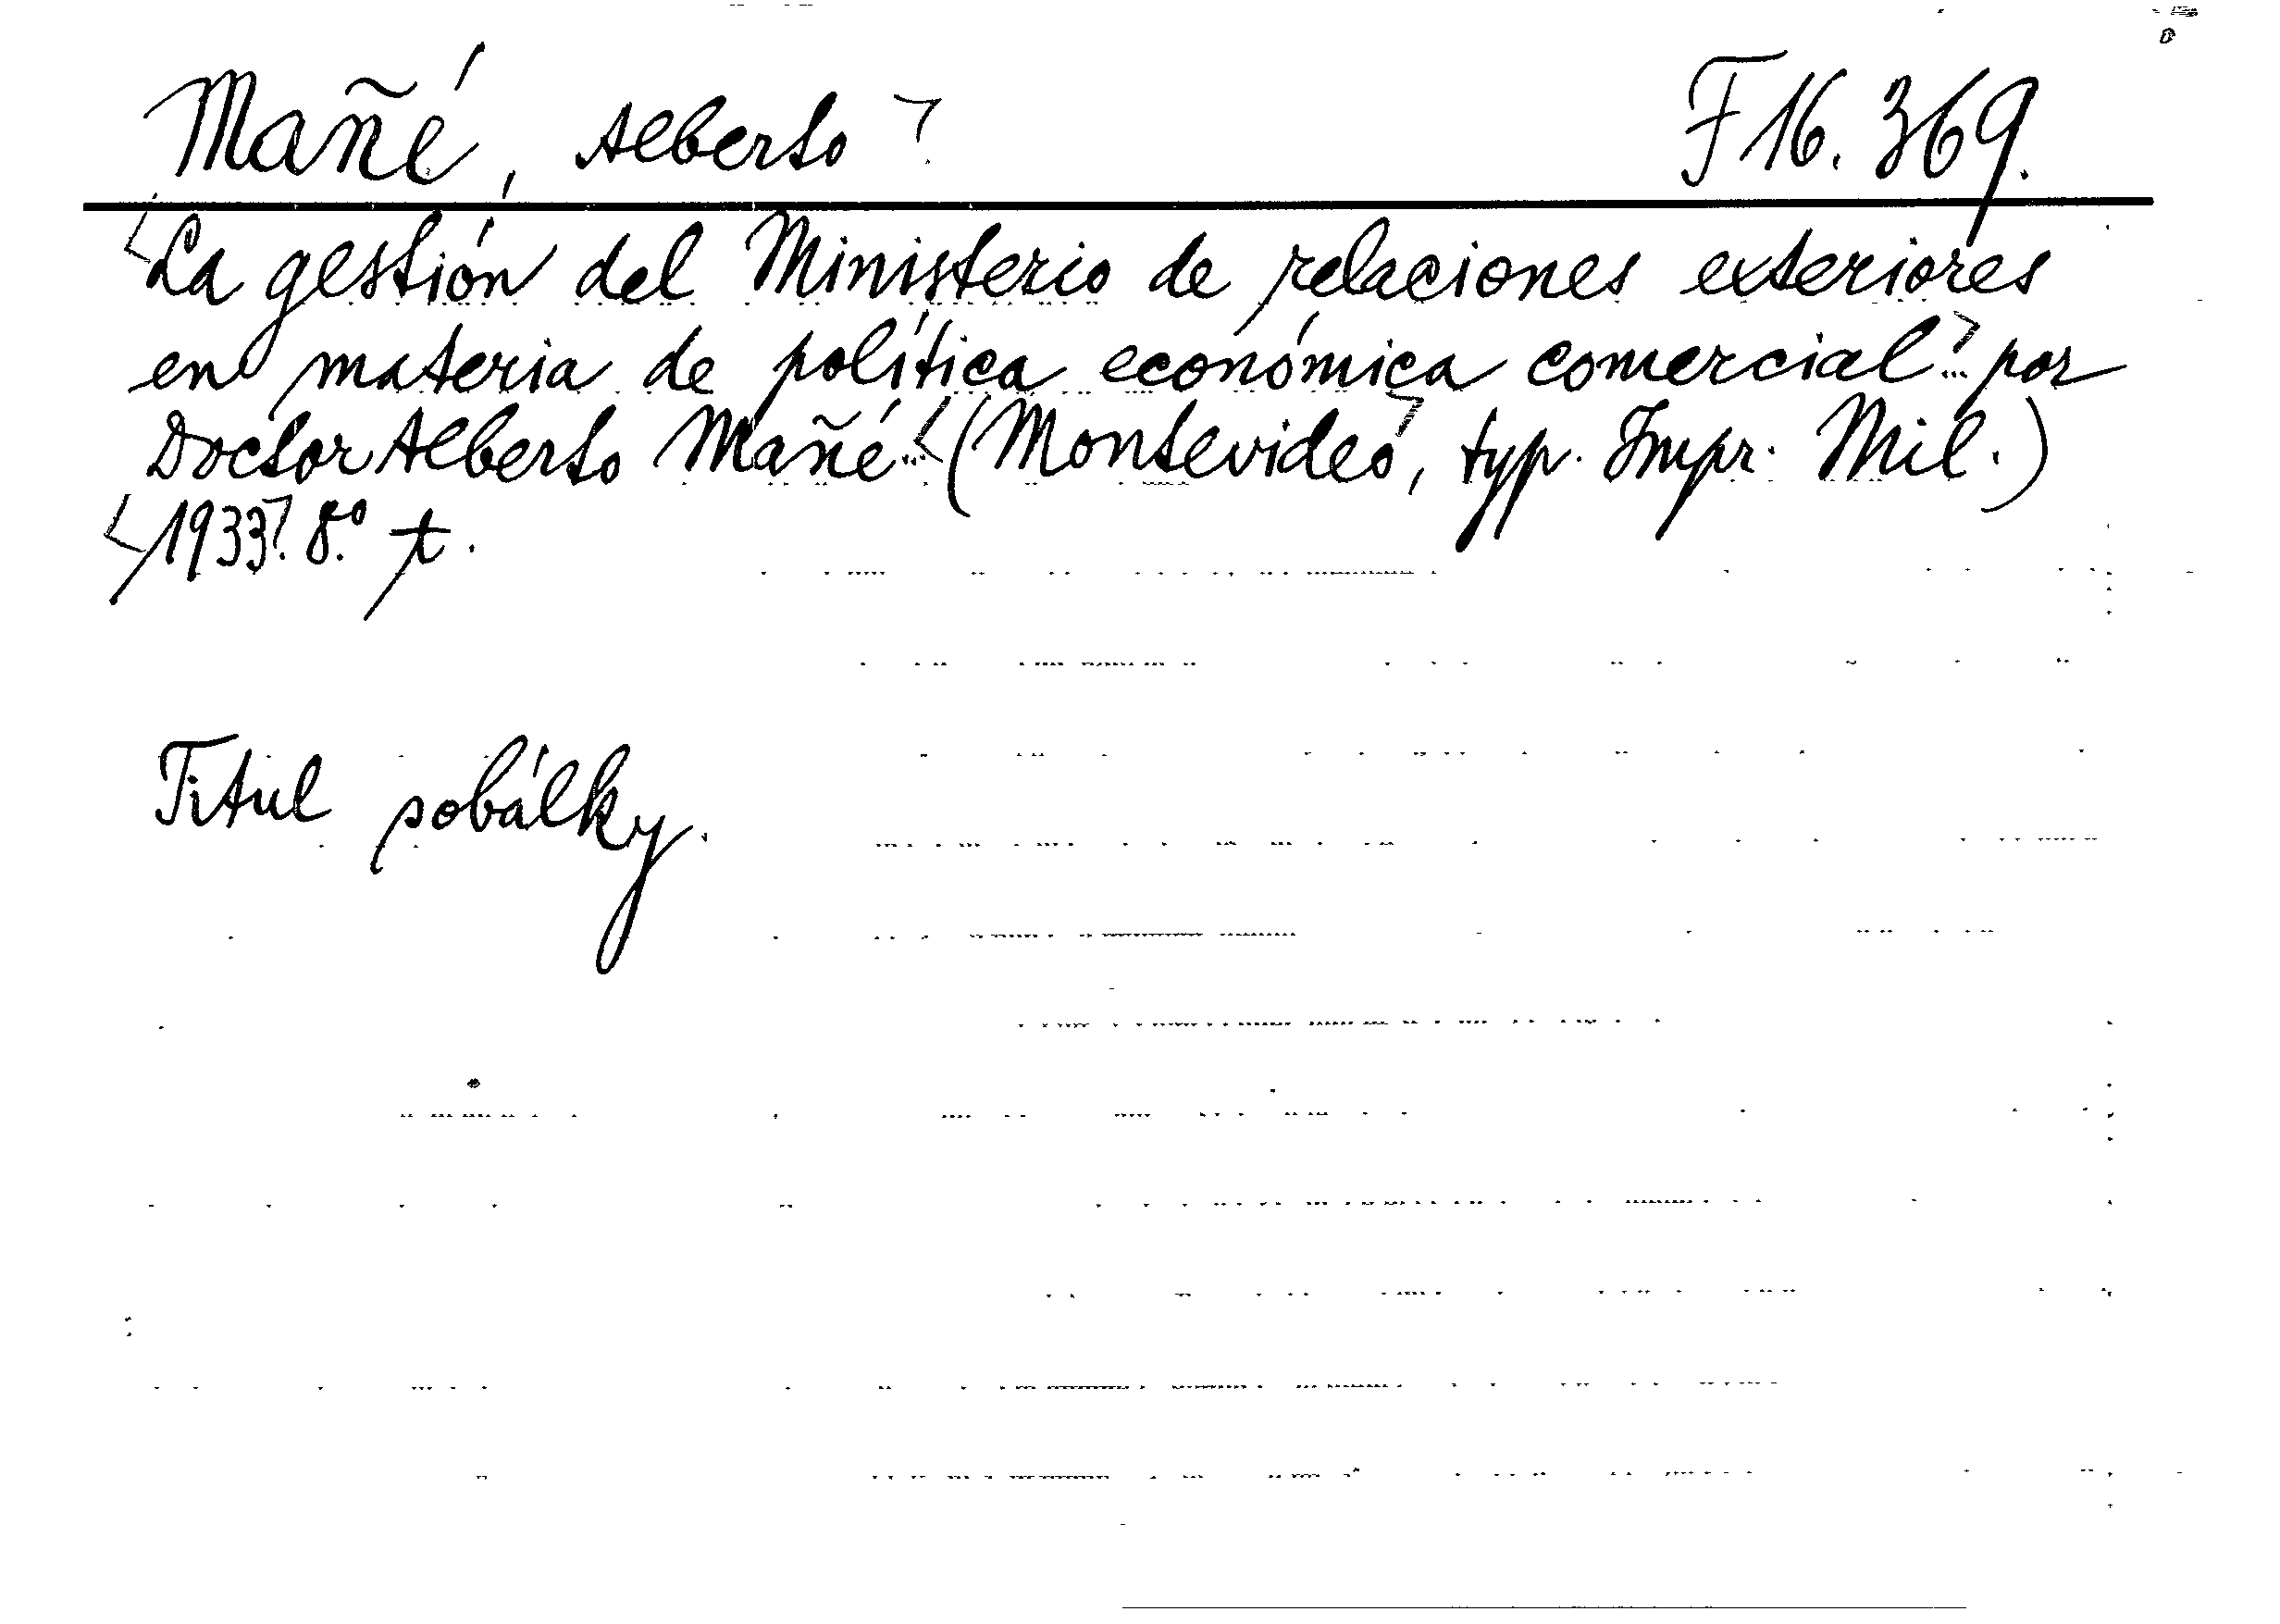 Mañé, Alberto F 16.369.
La gestión del Ministerio de relaciones exteriores
en materia de política económica comercial... por
Doctor Alberto Mañé... (Montevideo, typ. Impr. Mil.)
1933. 8° t.
Titul pobálky.